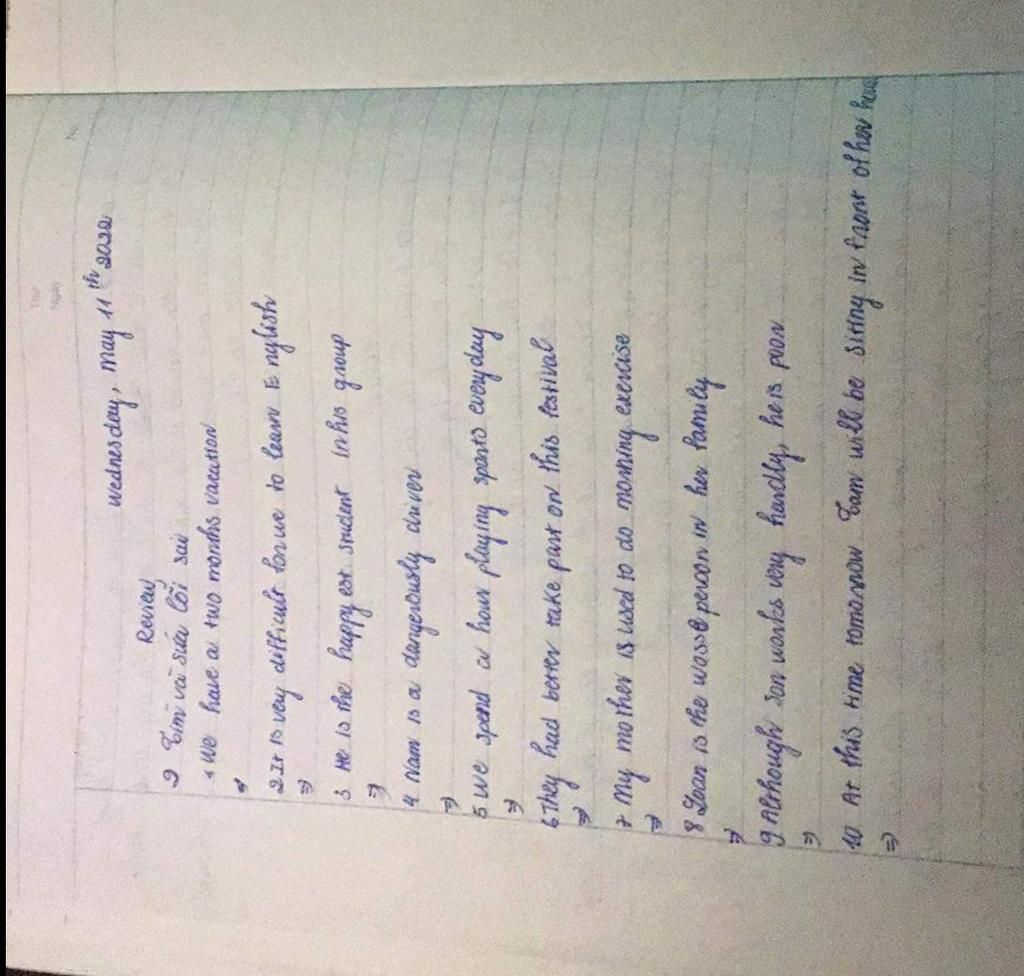 Thứ
Ngày
No.
Wednesday, may 11th 2022
Review
Tìm và sửa lỗi sai
1 We have a two months vacation
⇒
2 It is very difficult for we to learn English
⇒
3 He is the happy est student in his group
⇒
4 Nam is a dangerously driver
⇒
5 We spend a hour playing sports everyday
⇒
6 They had better take part on this festival
⇒
7 My mother is used to do morning exercise
⇒
8 Loan is the person in her family
⇒
9 Although Son works very hardly, he is poor
⇒
10 At this time tomorrow Tam will be siting in front of her
⇒